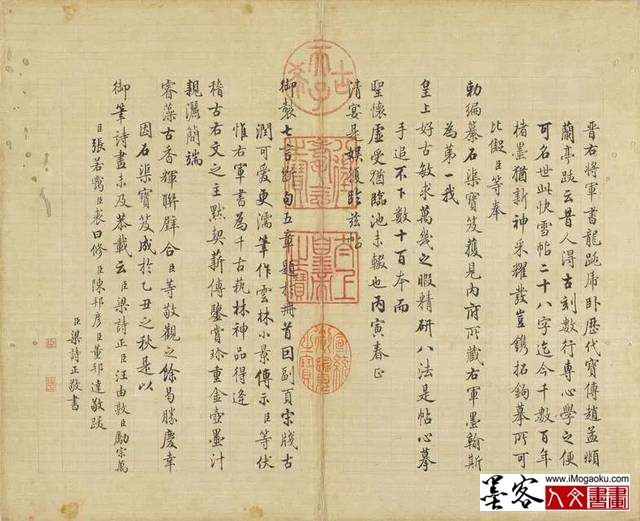 晋右将軍書龍跳席卧歷代寳傳趙孟頫
蘭亭跋云昔人得古刻數行專心學之便
可名世此快雪帖二十八字迄今千數百年
楮墨猶新神采耀發豈鐫拓鉤摹所可
比儗臣等奉
勅編纂石渠寳笈獲見内府所藏右軍墨翰斯
為第一我
皇上好古敏求萬幾之暇精研八法是帖心摹
手追不下數十百本而
聖懐虚受猶臨池未輟也丙寅春正
清宴是娱復臨兹帖
御製七言斷句五章題於冊首回副頁宋牋古
潤可愛更濡筆作雲林小景傳示臣等伏
惟右軍書為千古藝林神品得逢
稽古右文之主黙契薪傳鑒賞珍重金壺墨汁
親灑簡端
睿藻古香輝聨璧合臣等敬觀之餘曷勝慶幸
因石渠寳笈成於乙丑之秋是以
御筆詩畫未及恭載云臣梁詩正臣汪由敦臣勵宗萬
臣張若靄臣裘曰修臣陳邦彦臣董邦達敬跋
臣梁詩正敬書
古希天子
墨客
www.iMogaoku.com
人文書畫